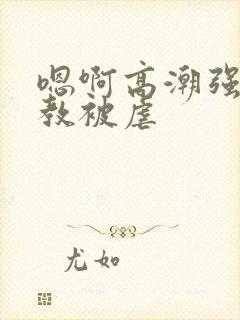 嗯啊高潮强
教被虐
尤如